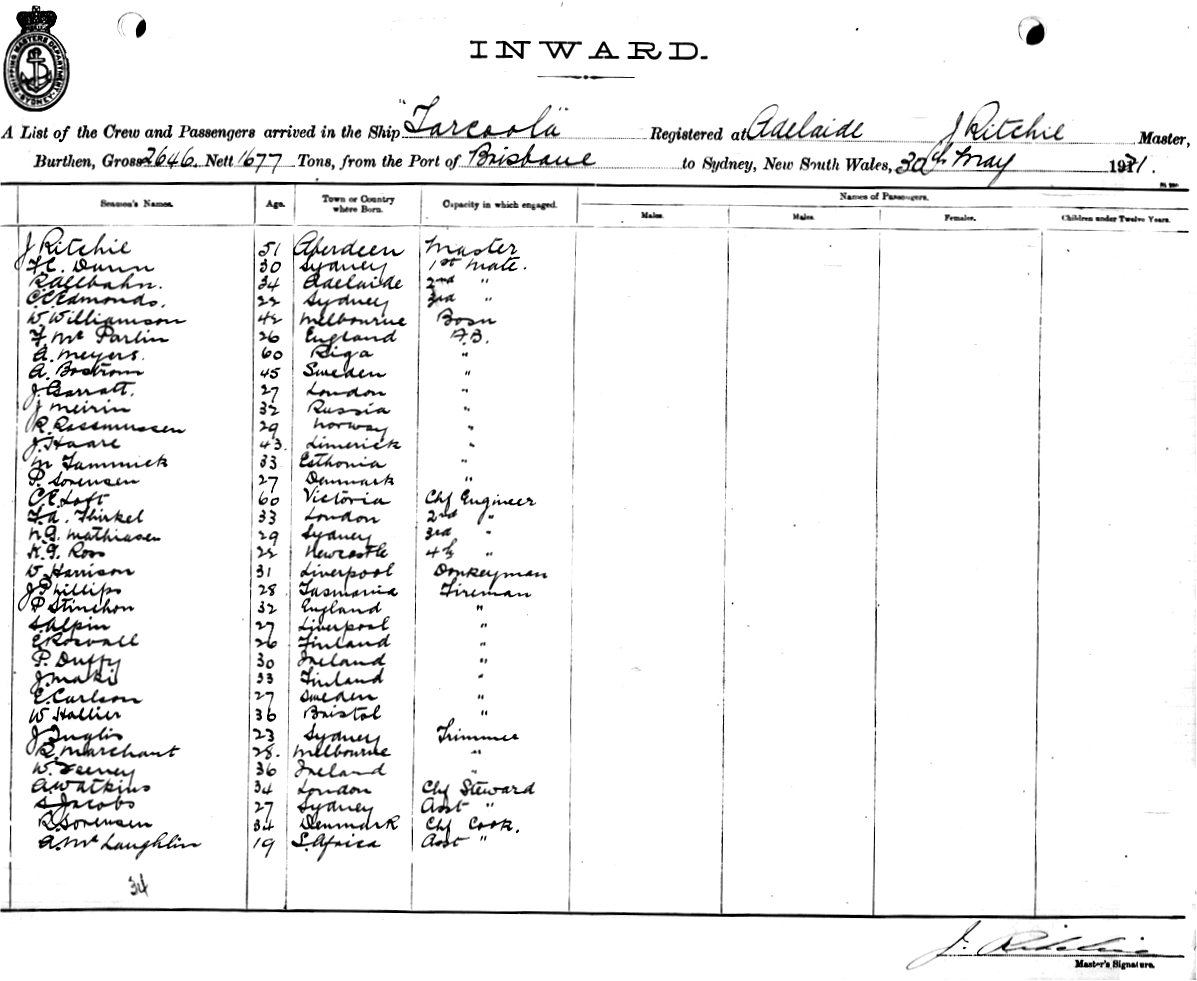 SHIPPING MASTERS DEPARTMENT SYDNEY
INWARD.
A List of the Crew and Passengers arrived in the Ship "Tarcoola" Registered at Adelaide J Ritchie Master,
Burthen, Gross 2646 Nett 1677 Tons, from the Port of Brisbane to Sydney, New South Wales, 30th May 1921.
Seamen's Names. Age. Town or Country where Born. Capacity in which engaged. Names of Passengers.
Males. Males. Females. Children under Twelve Years.
J Ritchie 51 Aberdeen Master
F.C. Dunn 30 Sydney 1st Mate.
R Allbahn. 34 Adelaide 2nd "
C.C. Edmonds. 22 Sydney 3rd "
W. Williamson 42 Melbourne Bosn
F. Mc Parlin 26 England A.B.
A. Meyers. 60 Riga "
A. Bostrom 45 Sweden "
J. Garratt. 27 London "
J Meirin 32 Russia "
R. Rassmussen 29 Norway "
J. Haare 43. Limerick "
M Tammick 33 Esthonia "
P. Sorensen 27 Denmark "
C.E. Loft 60 Victoria Chf Engineer
F.A. Thirkel 33 London 2nd "
N.G. Mathiasen 29 Sydney 3rd "
K.G. Ross 22 Newcastle 4th "
W Harrison 31 Liverpool Donkeyman
J Phillips 28 Tasmania Fireman
P Stinchon 32 England "
S. Alpin 27 Liverpool "
E Rosvall 26 Finland "
P. Duffy 30 Ireland "
J. Maki 33 Finland "
E. Carlson 27 Sweden "
W Hallier 36 Bristol "
J Inglis 23 Sydney Trimmer
R. Marchant 28. Melbourne "
W. Feeney 36 Ireland "
A Watkins 34 London Chf Steward
S Jacobs 27 Sydney Asst "
R. Sorensen 34 Denmark Chf Cook.
A. Mc Laughlin 19 S. Africa Asst "
34
J. Ritchie
Master's Signature.